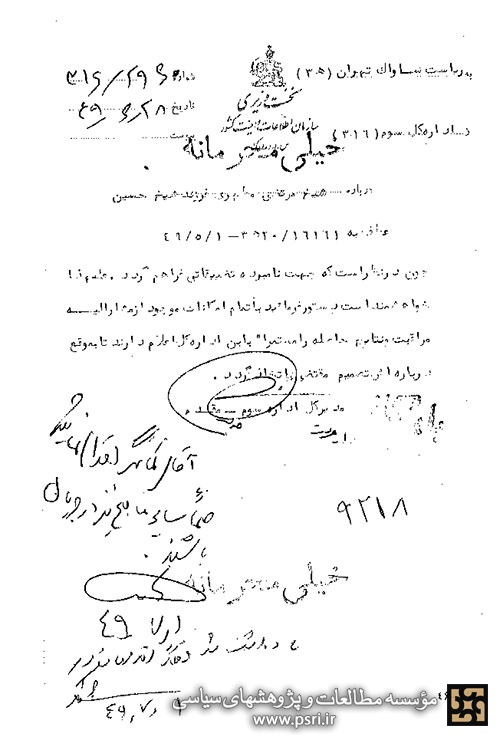 به ریاست ساواک تهران (۳ه‍)
شماره ۳۱۶/۲۹۶
از اداره کل سوم (۳۱۶)
تاریخ ۴۹/۶/۲۸
پیوست
نخست وزیری
سازمان اطلاعات و امنیت کشور
خیلی محرمانه
درباره شیخ مرتضی فرزند شیخ حسین
عطف به ۱۶۱۶۱/ ۳ه‍۲۰-۴۹/۵/۱
چون در نظر است که جهت نامبرده تضییقاتی فراهم گردد. علیهذا
خواهشمند است دستور فرمائید با تمام امکانات موجود از مشارالیه
مراقبت و نتایج حاصله را مستمرا" باین اداره کل اعلام دارند تا بموقع
درباره اش تصمیم مقتضی اتخاذ گردد.
مدیر کل اداره سوم - مقدم
آقای
باشند.
۹۲۱۸
خیلی محرمانه
۴۹/۷/۱
۴۹/۷/
مؤسسه مطالعات و پژوهشهای سیاسی
www.psri.ir